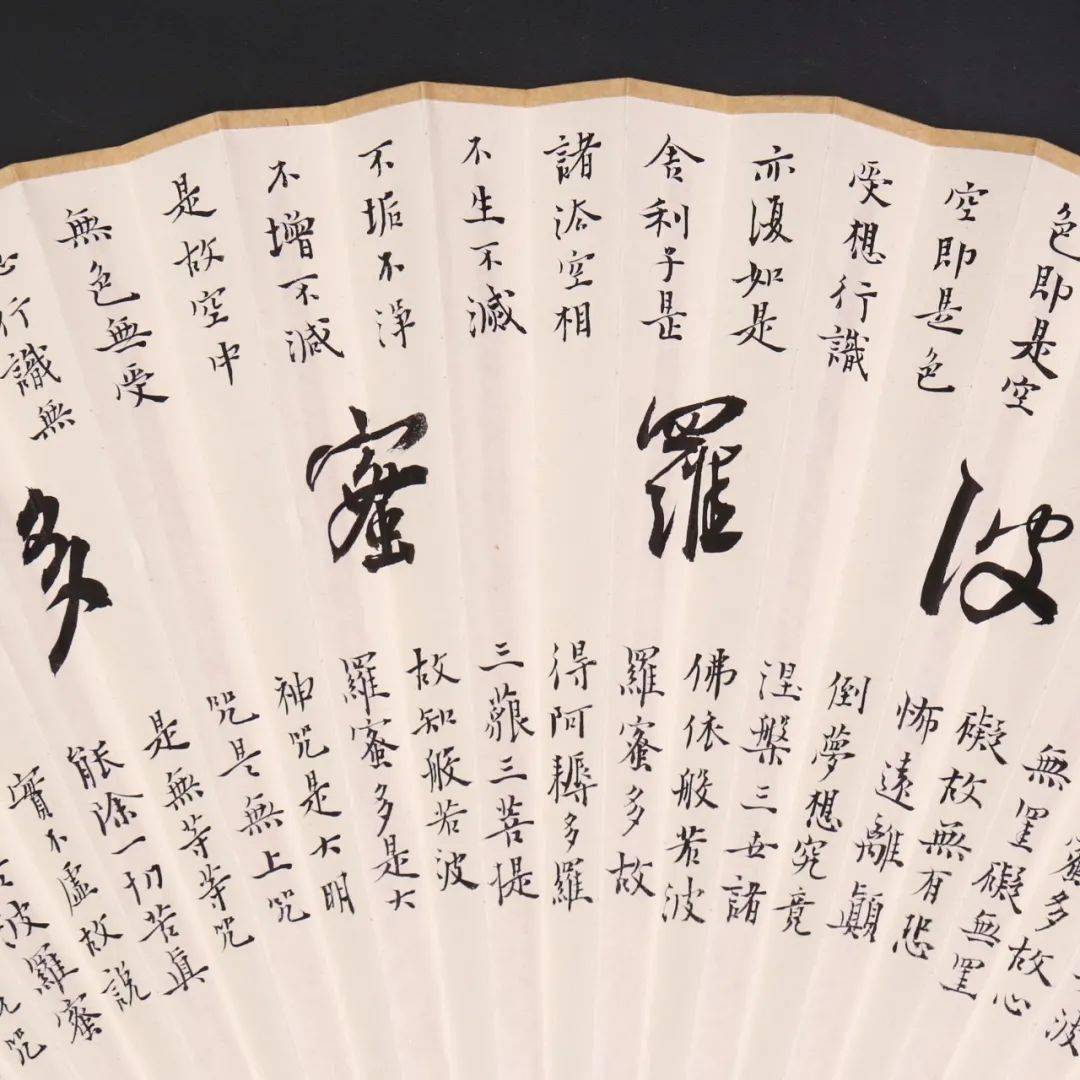 色即是空
空即是色
受想行識
亦復如是
舍利子是
諸法空相
不生不滅
不垢不淨
不增不減
是故空中
無色無受
行識無
波
羅
蜜
多
波
蜜多故心
無罣礙無罣
礙故無有恐
怖遠離顛
倒夢想究竟
涅槃三世諸
佛依般若波
羅蜜多故
得阿耨多羅
三藐三菩提
故知般若波
羅蜜多是大
神咒是大明
咒是無上咒
是無等等咒
能除一切苦真
實不虛故說
波羅蜜
咒